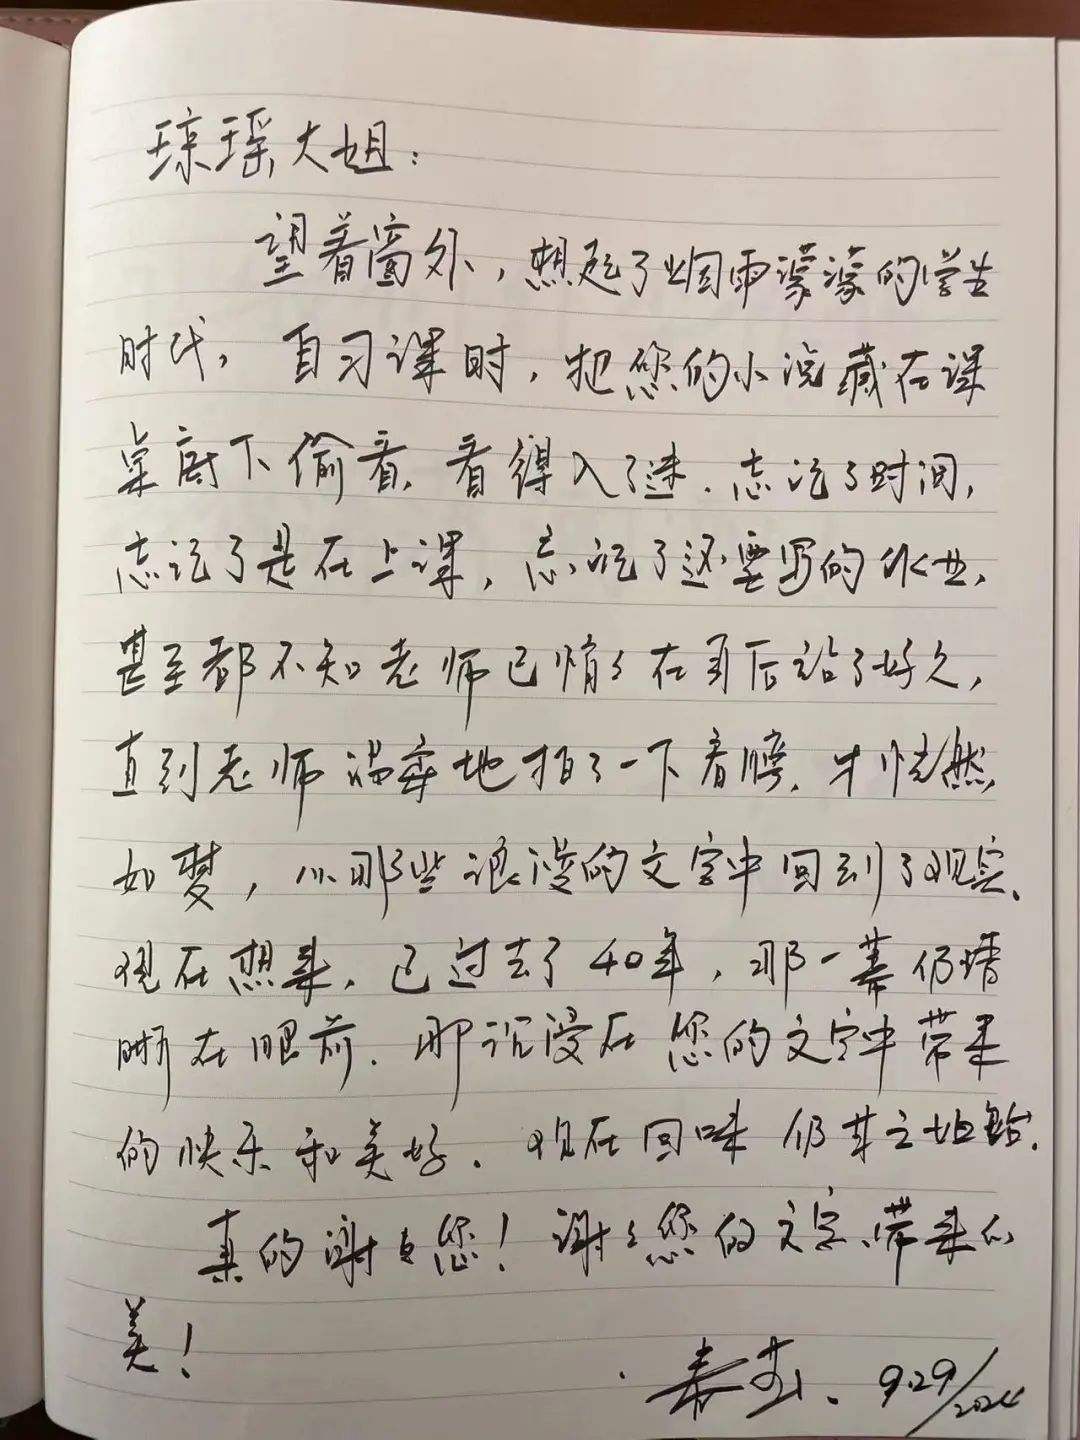 琼瑶大姐：
望着窗外，想起了烟雨濛濛的学生
时代，自习课时，把您的小说藏在课
桌底下偷看，看得入了迷．忘记了时间，
忘记了是在上课，忘记了还要写的作业，
甚至都不知老师已悄々在身后站了好久，
直到老师温柔地拍了一下肩膀，才恍然
如梦，从那些浪漫的文字中回到了现实．
现在想来，已过去了40年，那一幕仍清
晰在眼前．那沉浸在您的文字中带来
的快乐和美好．现在回味仍甘之如饴．
真的谢々您！谢々您的文字，带来的
美！
春 9.29/2024